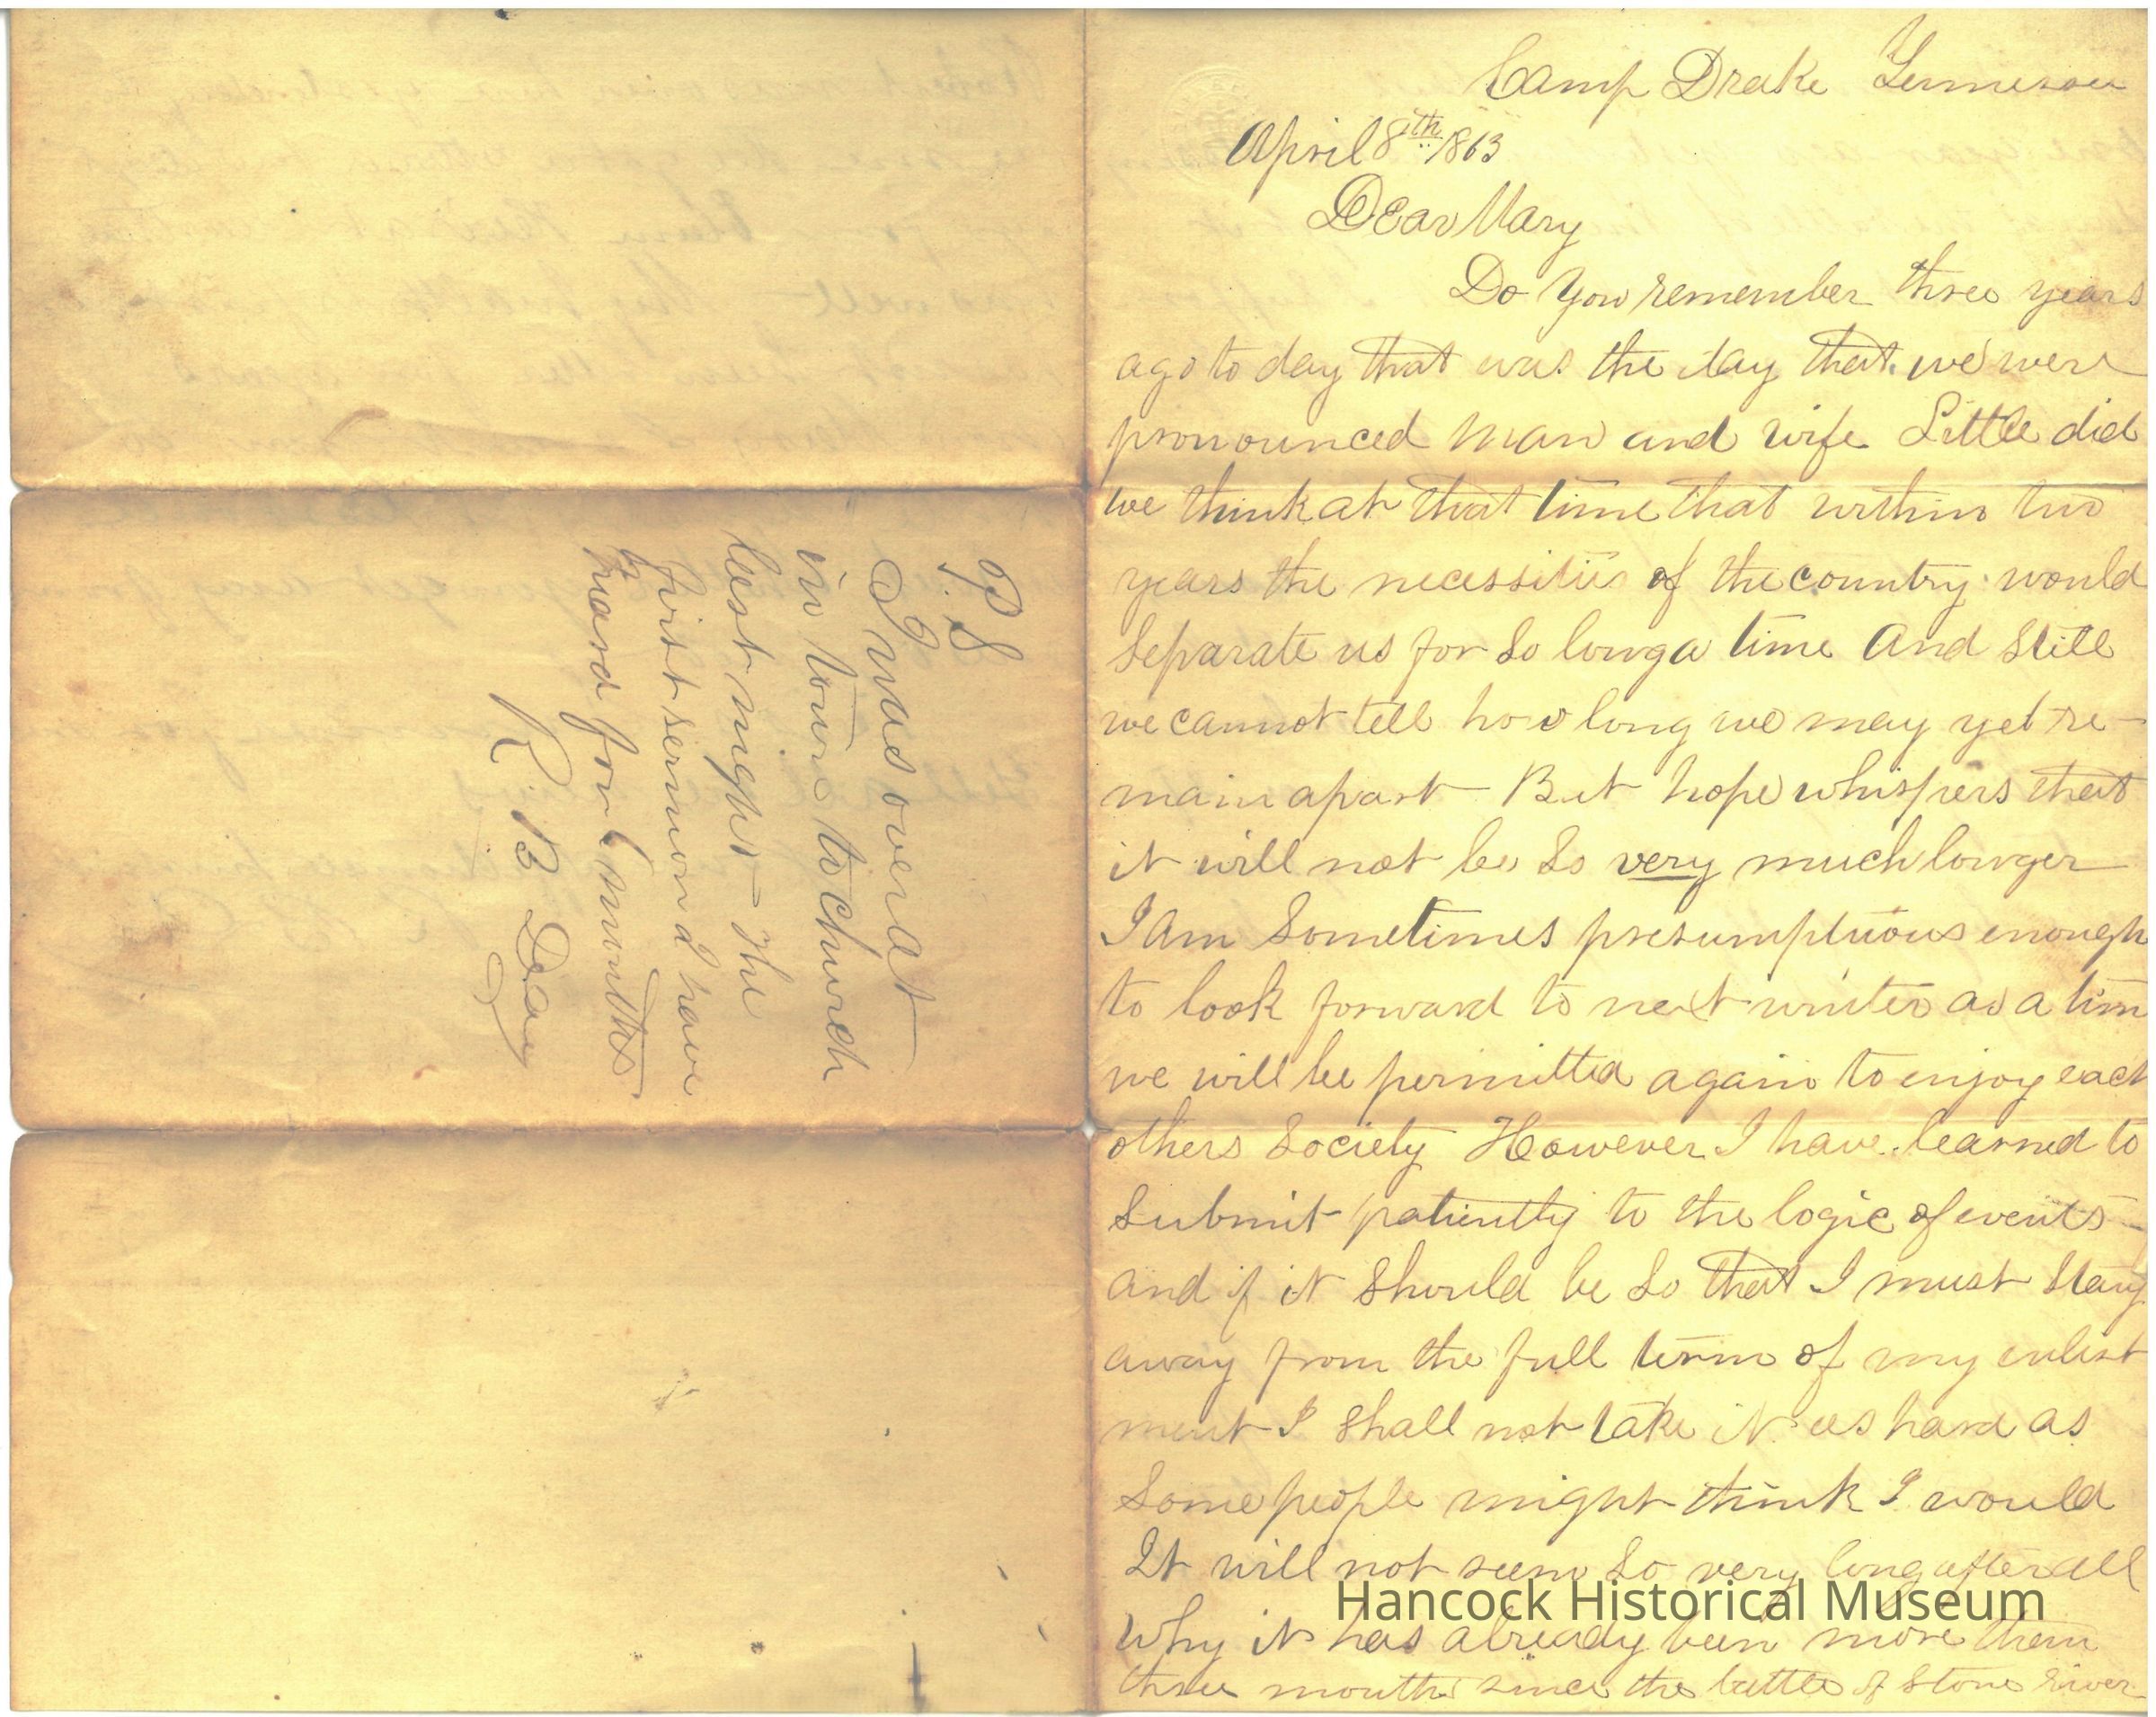 Camp Drake Tennessee
April 8th 1863
Dear Mary
Do you remember three years
ago to day that was the day that we were
pronounced man and wife Little did
we think at that time that within two
years the necessities of the country would
Separate us for So long a time And Still
we cannot tell how long we may yet re-
main apart But hope whispers that
it will not be So very much longer
I Am Sometimes presumptuous enough
to look forward to next winter as a time
we will be permitted again to enjoy each
others Society However I have learned to
Submit patiently to the logic of events -
and if it Should be So that I must Stay
away from the full term of my enlist
ment I Shall not take it as hard as
Some people might think I would
It will not seem So very long after all
Why it has already been more than
three months since the battle of Stone River
Hancock Historical Museum
P.S
I was over at
in town to church
last night - The
first sermon I have
heard for 6 months
R. B Day